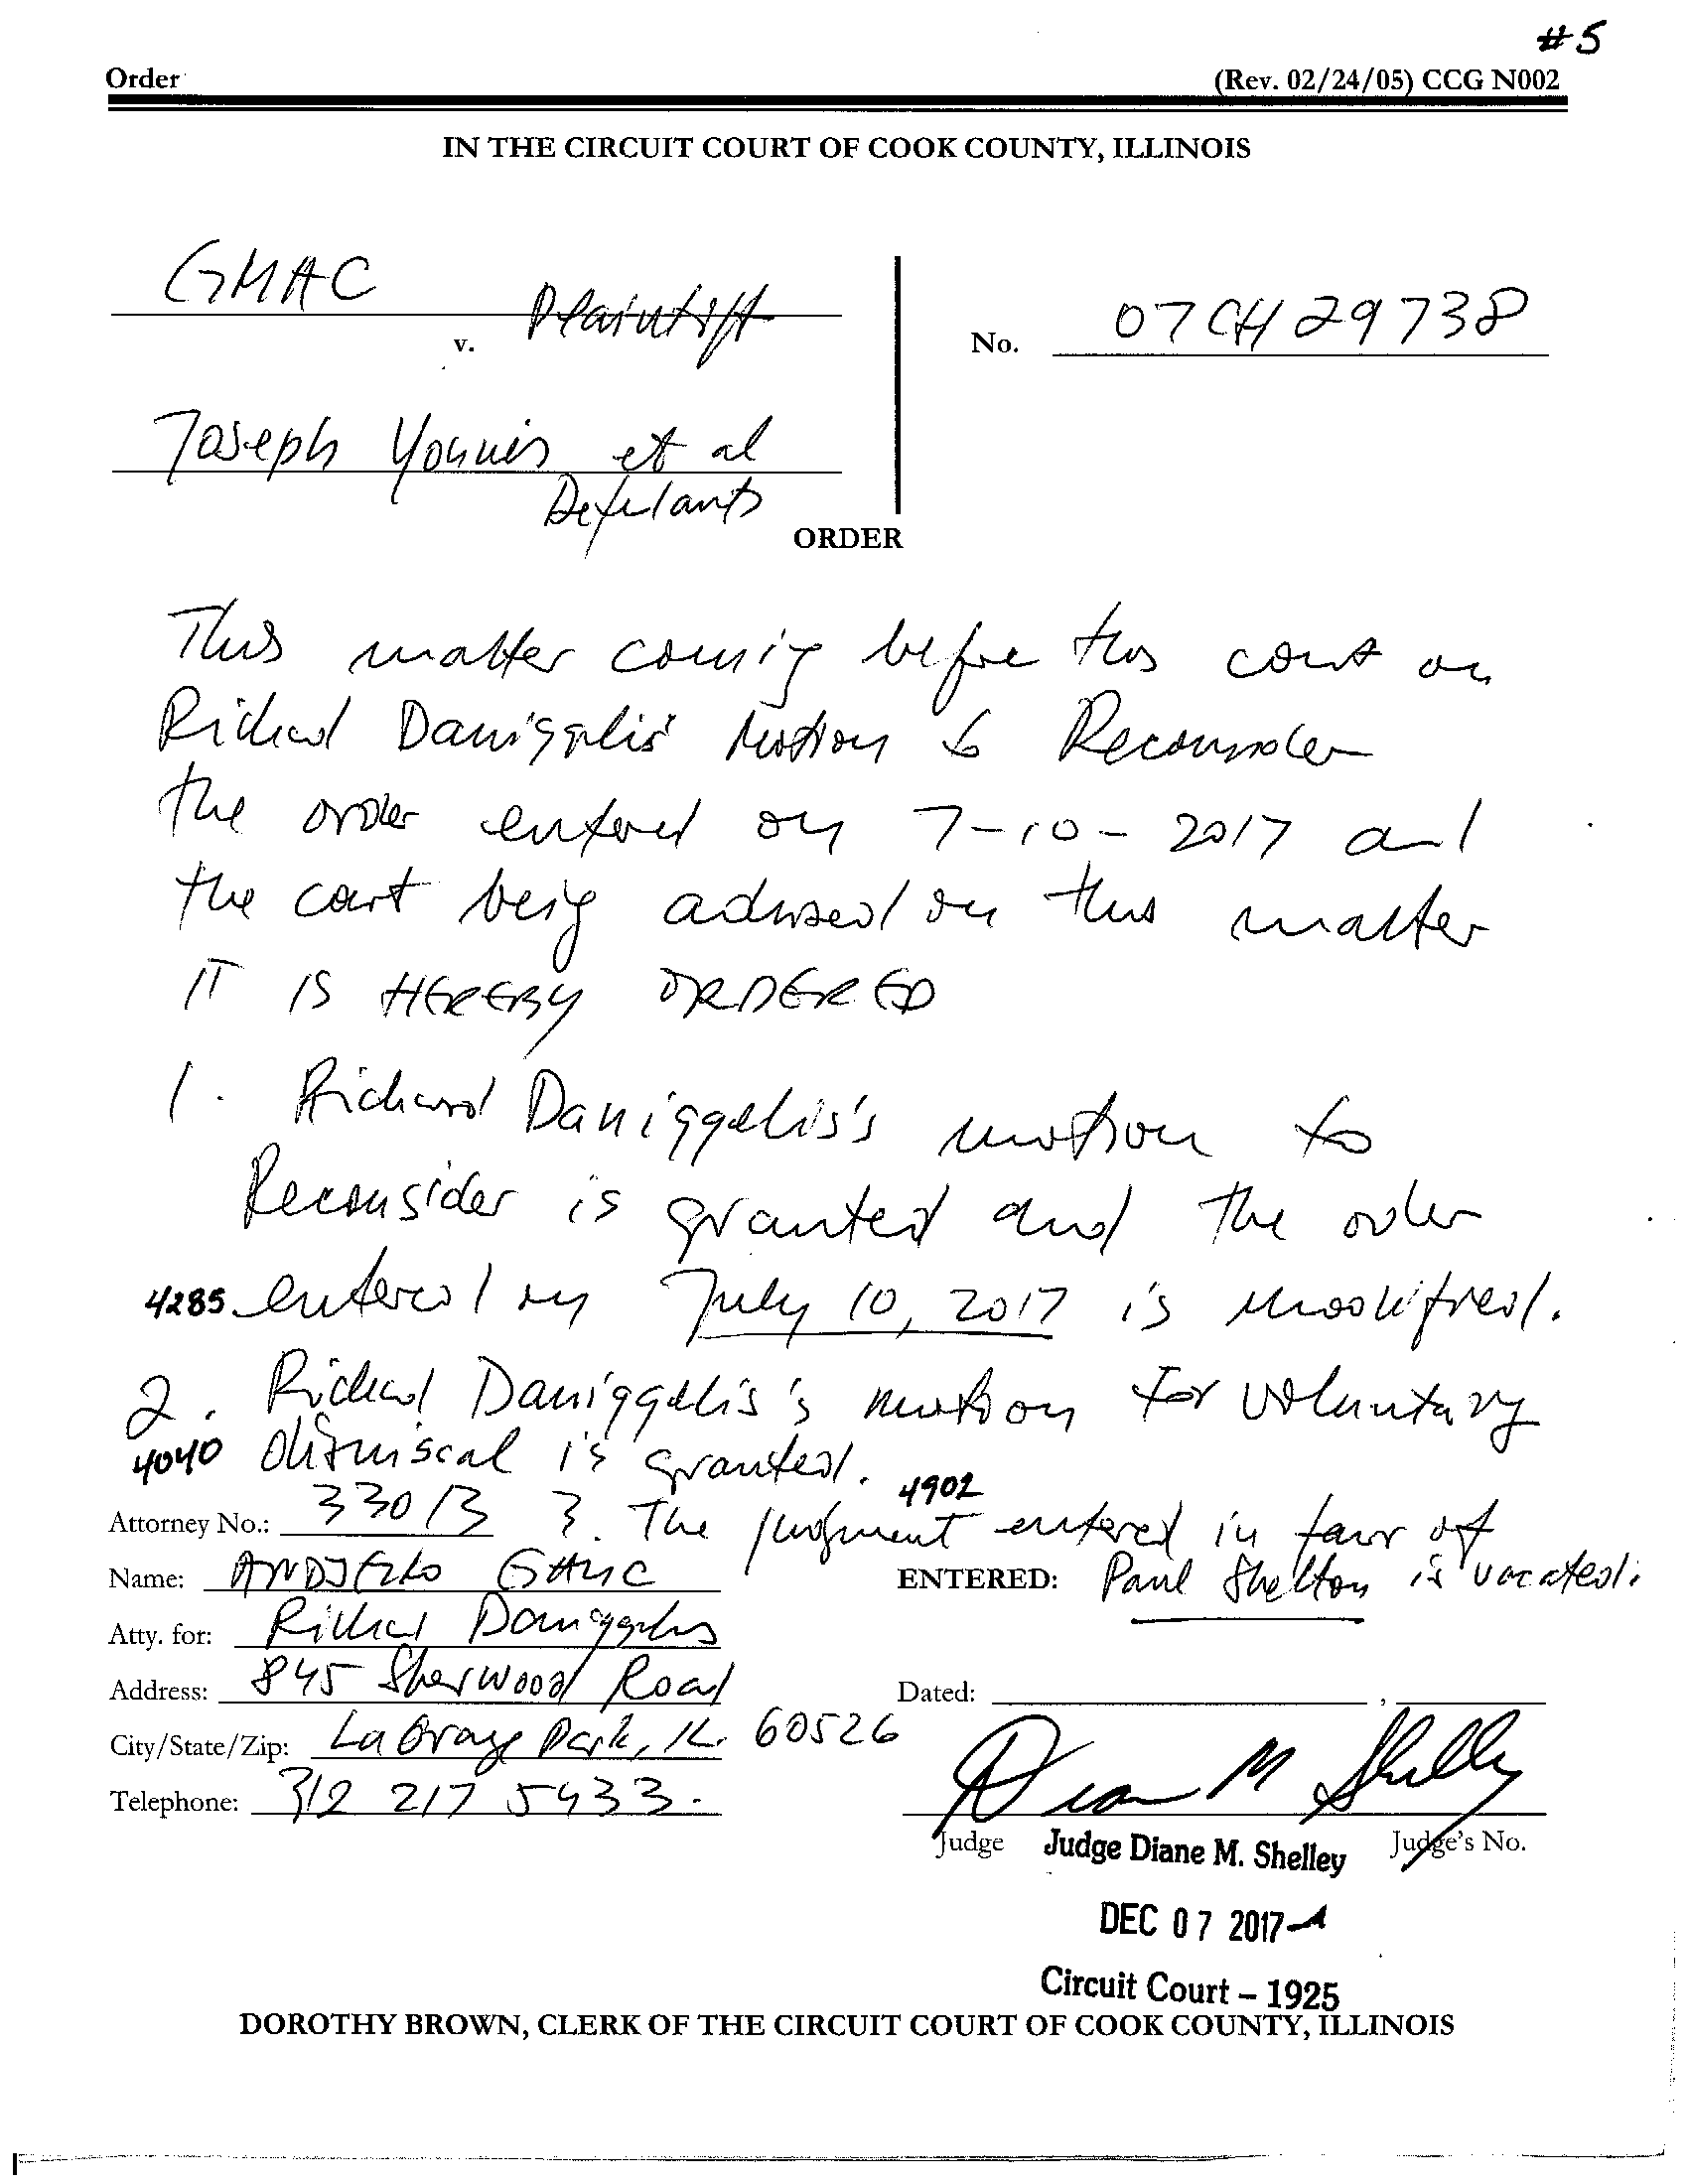 #5
Order (Rev. 02/24/05) CCG N002
IN THE CIRCUIT COURT OF COOK COUNTY, ILLINOIS
GMAC
Plaintiff
v.
No. 07 CH 29738
Joseph Younes et al
Defendants
ORDER
This matter coming before this court on
Richard Daniggelis' Motion to Reconsider
the order entered on 7-10-2017 and
the court being advised on this matter
IT IS HEREBY ORDERED
1. Richard Daniggelis's motion to
Reconsider is granted and the order
4285 entered on July 10, 2017 is modified.
2. Richard Daniggelis's motion for voluntary
4040 dismiscal is granted.
4902
Attorney No.: 33013 3. The judgment entered in favor of
Name: ANDJELKO GALIC ENTERED: Paul Shelton is vacated.
Atty. for: Richard Daniggelis
Address: 845 Sherwood Road Dated:
City/State/Zip: La Grange Park, IL. 60526
Telephone: 312 217 5433.
Diane M Shelley
Judge Judge Diane M. Shelley Judge's No.
DEC 07 2017
Circuit Court – 1925
DOROTHY BROWN, CLERK OF THE CIRCUIT COURT OF COOK COUNTY, ILLINOIS